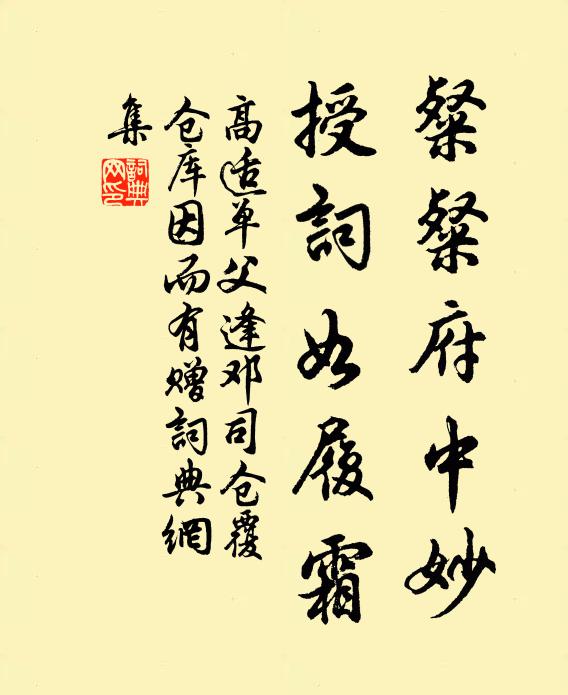 粲粲府中妙
授詞如履霜
高适单父逢邓司仓覆
仓库因而有赠詞典網
集
詞典網印